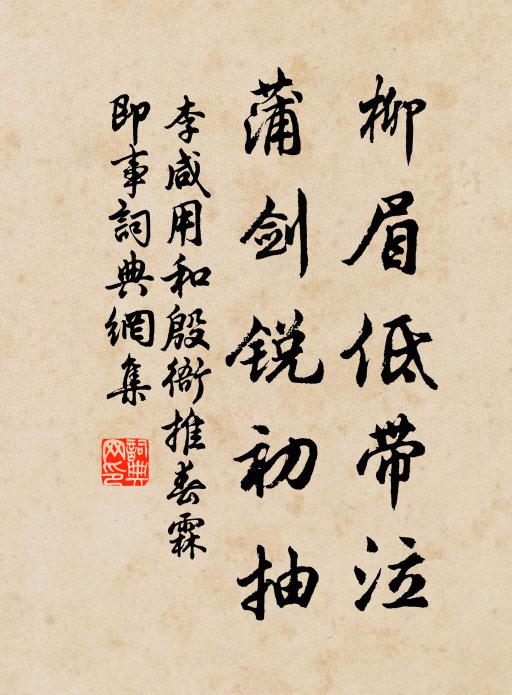 柳眉低带泣
蒲剑锐初抽
李咸用和殷衙推春霖
即事詞典網集
詞典网印